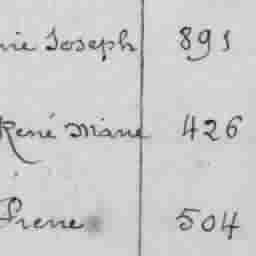 Joseph 891
René Marie 426
Pierre 504